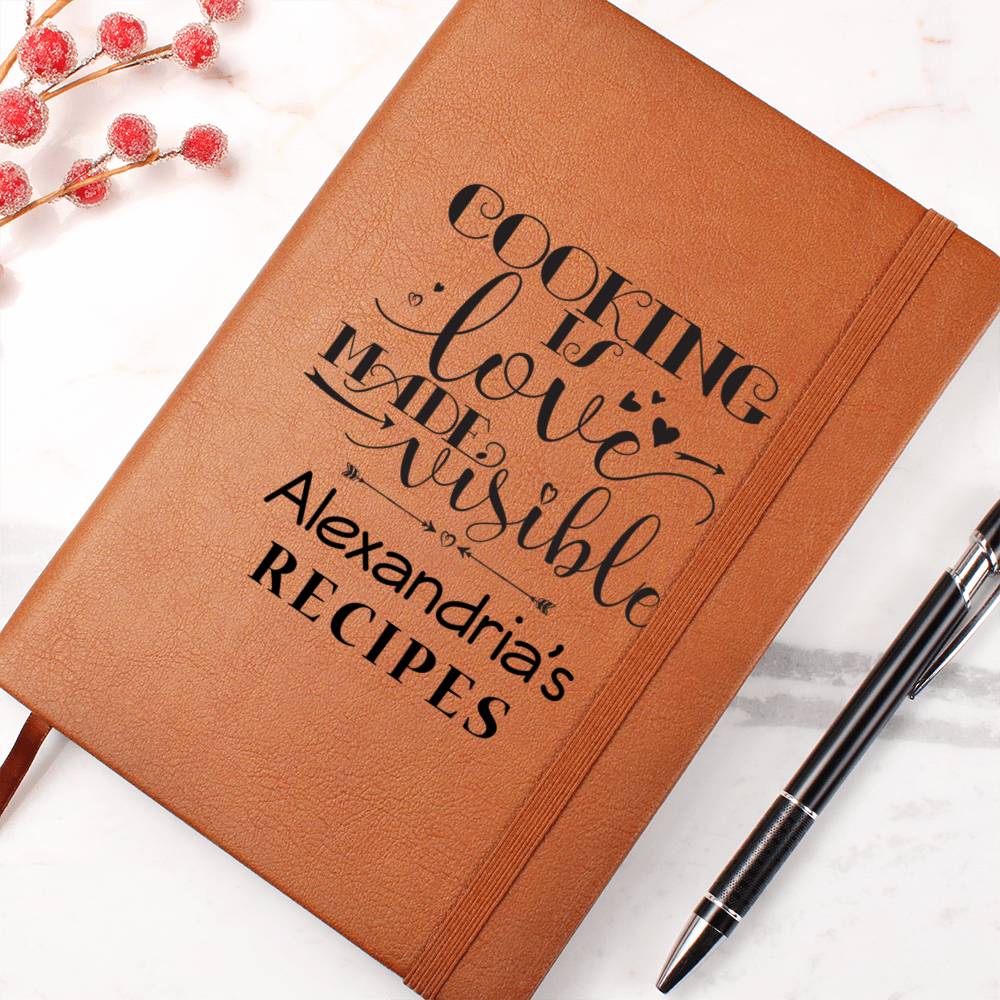 COOKING
IS
love
MADE
visible
Alexandria's
RECIPES